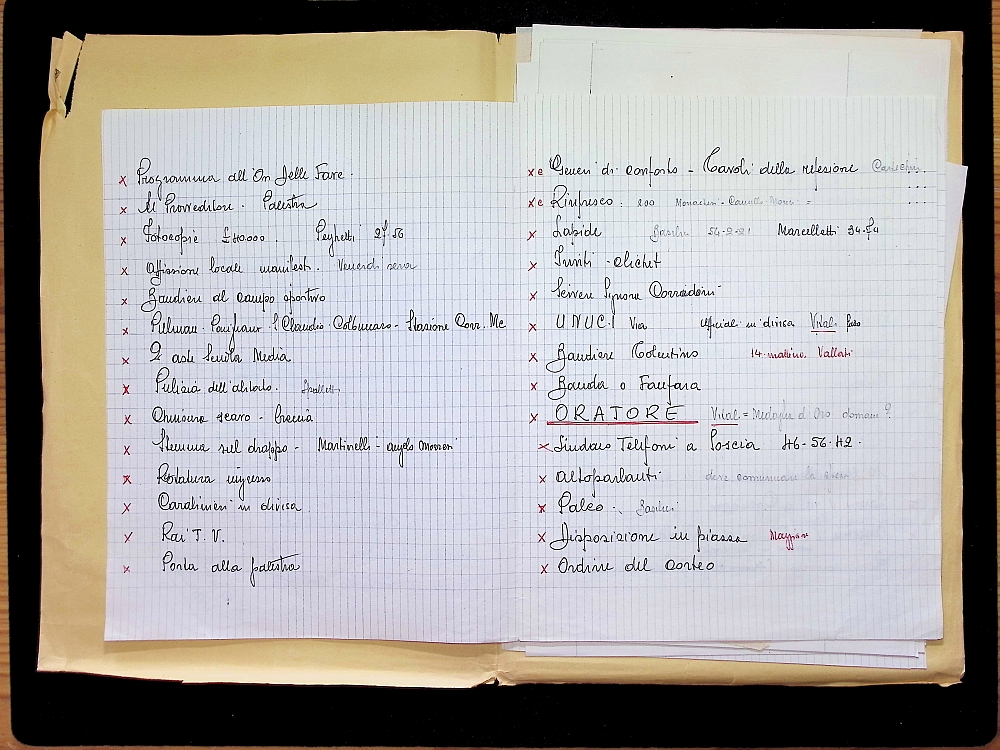 x Programma all'On Delle Fave.
x Al Provveditore. Palestra
x Fotocopie £40.000. 27.56
x Affissione locale manifesti. Venerdì sera
x Bandiere al campo sportivo
x Pullman. S. Claudio. Colbuccaro - Stazione Corr. Mc
x 2 aste Scuola Media
x Pulizia dell'abitato.
x scavo - breccia
x Stemma sul drappo - Martinelli - angelo
x ingresso
x Carabinieri in divisa
x Rai T.V.
x Porta alla palestra
xe Generi di conforto - Tavoli della refezione
xe Rinfresco. 200
x Lapide 54-2-21 Marcelletti 34-74
x Inviti - clichet
x Scrivere Signora Corradini
x U.N.U.C.I Via ufficiali in divisa Vitali
x Bandiere Tolentino 14 mattina Vallati
x Banda o Fanfara
x ORATORE Vitali = Medaglia d'Oro domani?
x Sindaco Telefoni a Poscia 46-56-42.
x altoparlanti deve comunicare la
x Palco.
x Disposizione in piazza
x Ordine del corteo